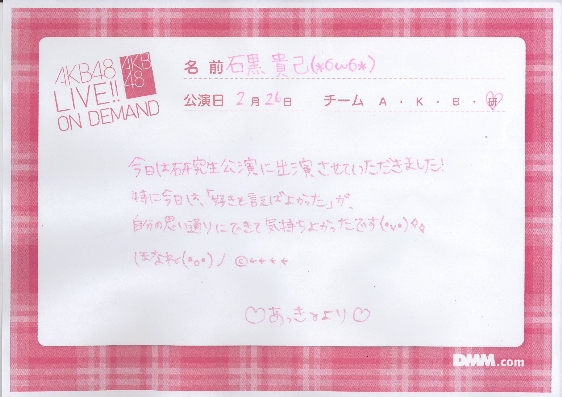 AKB48
LIVE!!
ON DEMAND
AKB
48
名前 石黒貴己(*6ω6*)
公演日 2月26日 チーム A・K・B・研
今日は研究生公演に出演させていただきました!
特に今日は、「好きと言えばよかった」が、
自分の思い通りにできて気持ちよかったです(°v°)
♡あっきょより♡
DMM.com